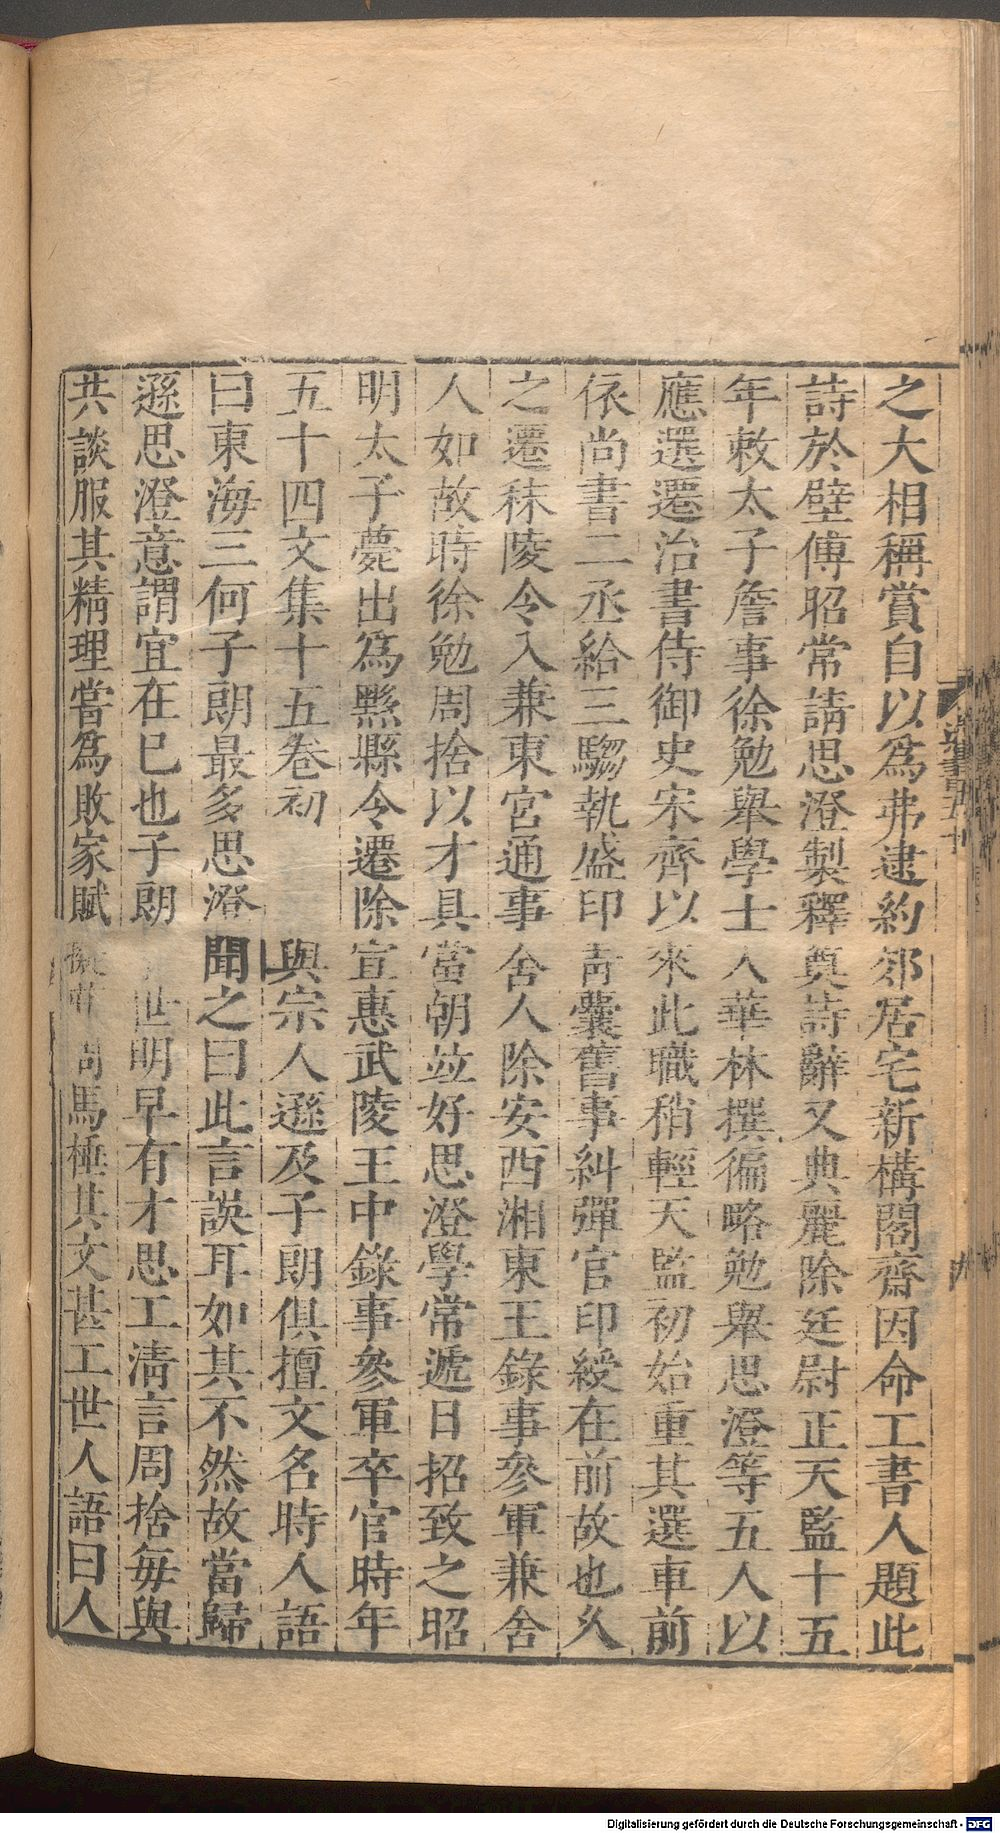 之大相稱賞自以爲弗逮約郊居宅新構閣齋因命工書人題此
詩於壁傅昭常請思澄製釋奠詩辭又典麗除廷尉正天監十五
年敕太子詹事徐勉舉學士入華林撰徧略勉舉思澄等五人以
應選遷治書侍御史宋齊以來此職稍輕天監初始重其選車前
依尚書二丞給三騶執盛印青囊舊事糾彈官印綬在前故也久
之遷秣陵令入兼東宮通事舍人除安西湘東王錄事參軍兼舍
人如故時徐勉周捨以才具當朝竝好思澄學常遞日招致之昭
明太子薨出爲黟縣令遷除宣惠武陵王中錄事參軍卒官時年
五十四文集十五卷初與宗人遜及子朗俱擅文名時人語
曰東海三何子朗最多思澄聞之曰此言誤耳如其不然故當歸
遜思澄意謂宜在已也子朗世明早有才思工清言周捨每與
共談服其精理嘗爲敗家賦馬棰其文甚工世人語曰人
Digitalisierung gefördert durch die Deutsche Forschungsgemeinschaft - DFG